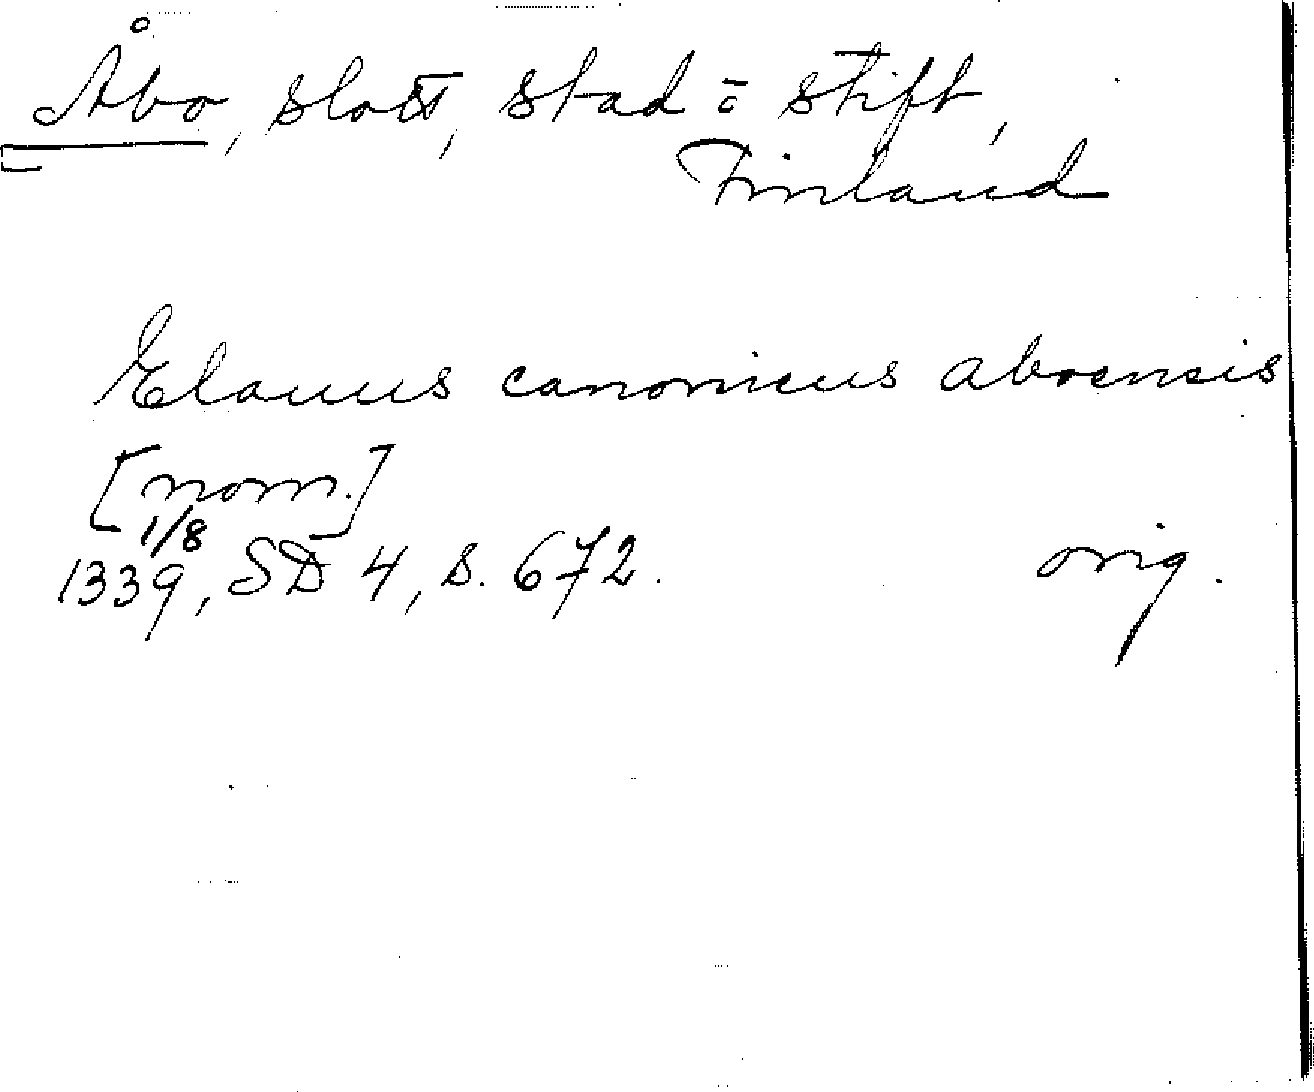 Åbo, slott, stad o stift,
Finland
Elauus canonicus aboensis
[nom.]
1/8
1339, SD 4, s. 672.
orig.